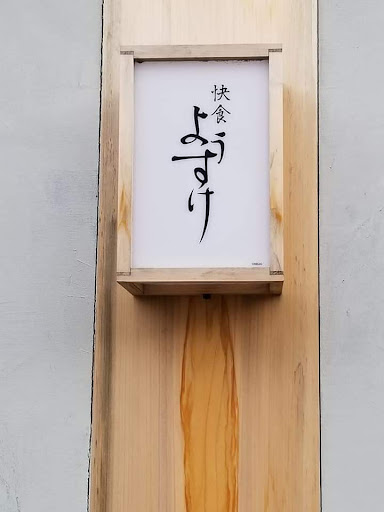 快食
ようすけ